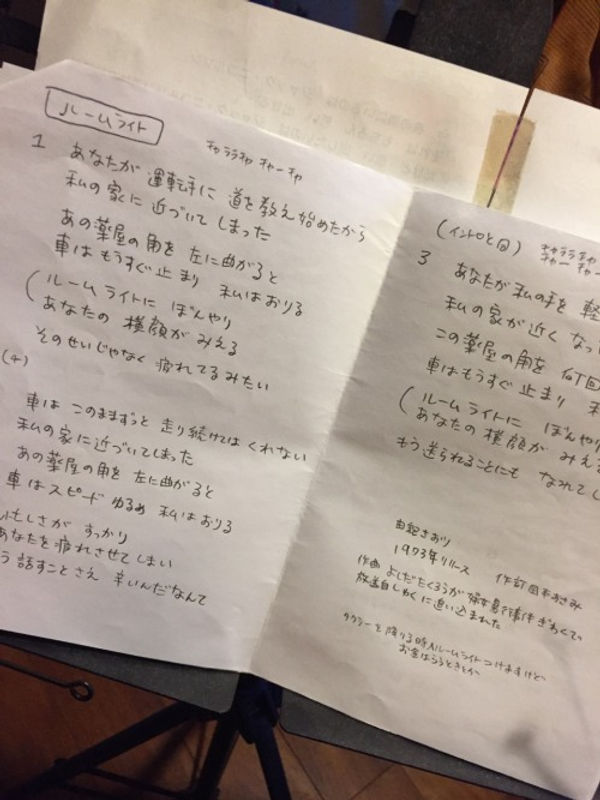 ルームライト
チャララチャ チャーチャ
1 あなたが 運転手に 道を教え始めたから
私の家に 近づいて しまった
あの薬屋の角を 左に曲がると
車は もうすぐ止まり 私はおりる
(ルームライトに ぼんやり
あなたの 横顔が みえる
そのせいじゃなく 疲れてるみたい
(4)
車は このままずっと 走り続けては くれない
私の家に近づいてしまった
あの薬屋の角を 左に曲がると
車はスピード ゆるめ 私はおりる
忙しさが すっかり
あなたを疲れさせて しまい
う 話すことさえ 辛いんだなんて
(イントロと同) チャララチャ
チャー チャ
3 あなたが私の手を 軽
私の家が近く なっ
この薬屋の角を 何回
車はもうすぐ 止まり 私
(ルームライトに ぼんやり
あなたの横顔が みえ
もう送られることにも なれてし
由紀さおり
1973年リリース 作詞 岡本おさみ
作曲 よしだたくろうが 婦女暴行事件
放送自しゅくに追い込まれた
タクシーを降りる時ルームライトつけますけど
お金はらうときとか